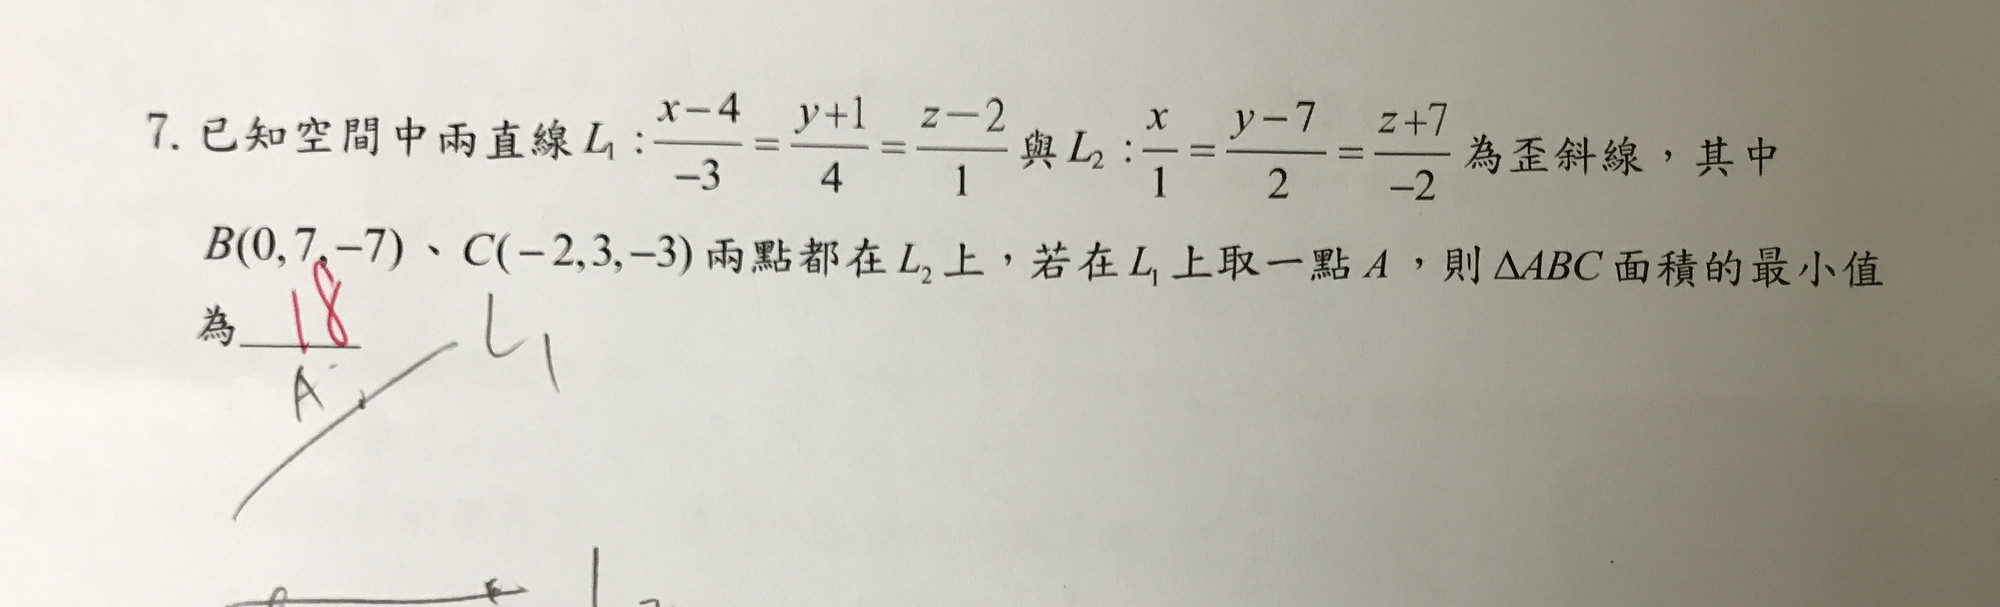 7. 已知空間中兩直線 L₁ : (x-4)/-3 = (y+1)/4 = (z-2)/1 與 L₂ : x/1 = (y-7)/2 = (z+7)/-2 為歪斜線，其中
B(0,7,-7)、C(-2,3,-3) 兩點都在 L₂ 上，若在 L₁ 上取一點 A，則 ΔABC 面積的最小值
為 18
L₁
A